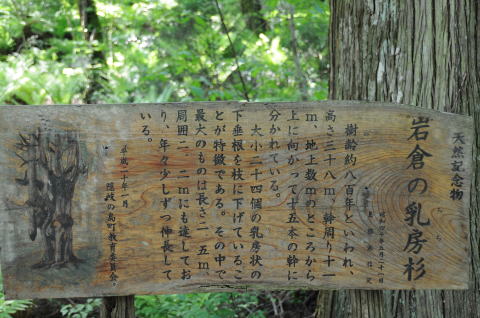 天然記念物
岩倉の乳房杉
樹齢約八百年といわれ、
高さ三十八m、幹周り十一
m、地上数mのところから
上に向かって十五本の幹に
分かれている。
大小二十四個の乳房状の
下垂根を枝に下げているこ
とが特徴である。その中で
最大のものは長さ二.五m、
周囲二.二mにも達してお
り、年々少しずつ伸長して
いる。
平成二十年一月
隠岐の島町教育委員会